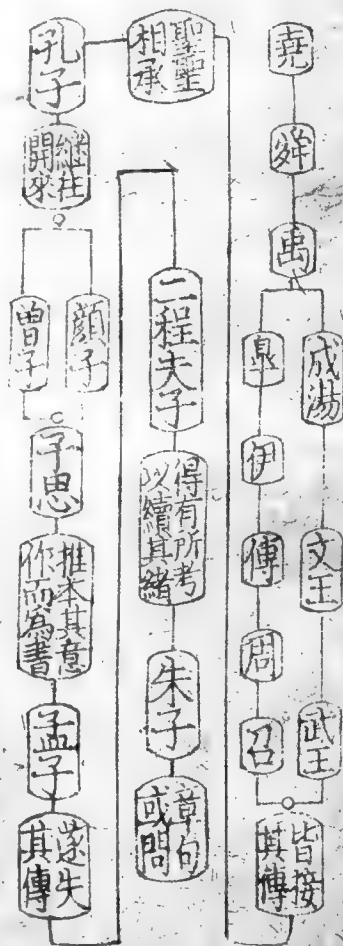 堯
舜
禹
成湯
文王
武王
皐
伊
傅
周
召
皆接
其傳
聖聖
相承
孔子
継往
開來
顔子
曽子
子思
推本其意
作而為書
孟子
遂失
其傳
二程夫子
得有所考
以續其緒
朱子
章句
或問